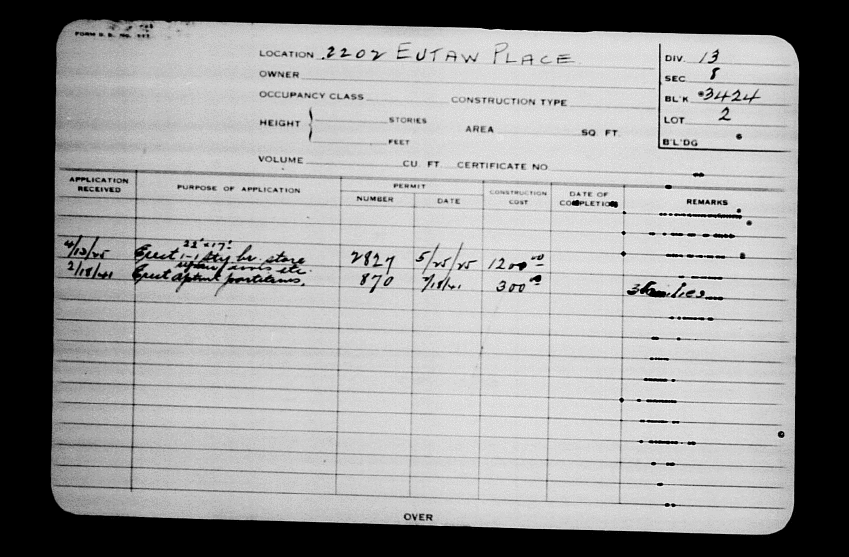 LOCATION 2202 EUTAW PLACE
OWNER
OCCUPANCY CLASS CONSTRUCTION TYPE
HEIGHT STORIES AREA SQ. FT.
FEET
VOLUME CU. FT. CERTIFICATE NO.
DIV. 13
SEC 8
BL'K 3424
LOT 2
B'L'DG
APPLICATION RECEIVED PURPOSE OF APPLICATION PERMIT NUMBER DATE CONSTRUCTION COST DATE OF COMPLETION REMARKS
22' x 17'
4/13/25 Erect 1-1 sty br. store 2827 5/25/25 1200 00
etc.
2/18/41 Erect partitions. 870 300 00 3 families
OVER